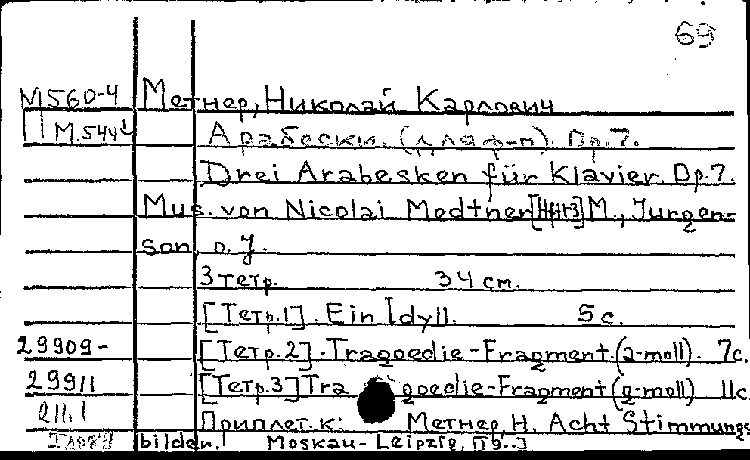 69
М560-4 Метнер, Николай Карлович
М.544 Арабески. (для ф-п). Op.7.
Drei Arabesken für Klavier. Op.7.
Mus. von Nicolai Medtner M., Jurgen-
son, o.J.
3 тетр. 34 см.
[Тетр.1]. Ein Idyll. 5 с.
29909- [Тетр.2]. Tragoedie-Fragment.(a-moll). 7с.
29911 [Тетр.3] Tragoedie-Fragment (g-moll) 11с
Приплет. к: Метнер, Н. Acht Stimmungs
bilden. Moskau-Leipzig, [19..]